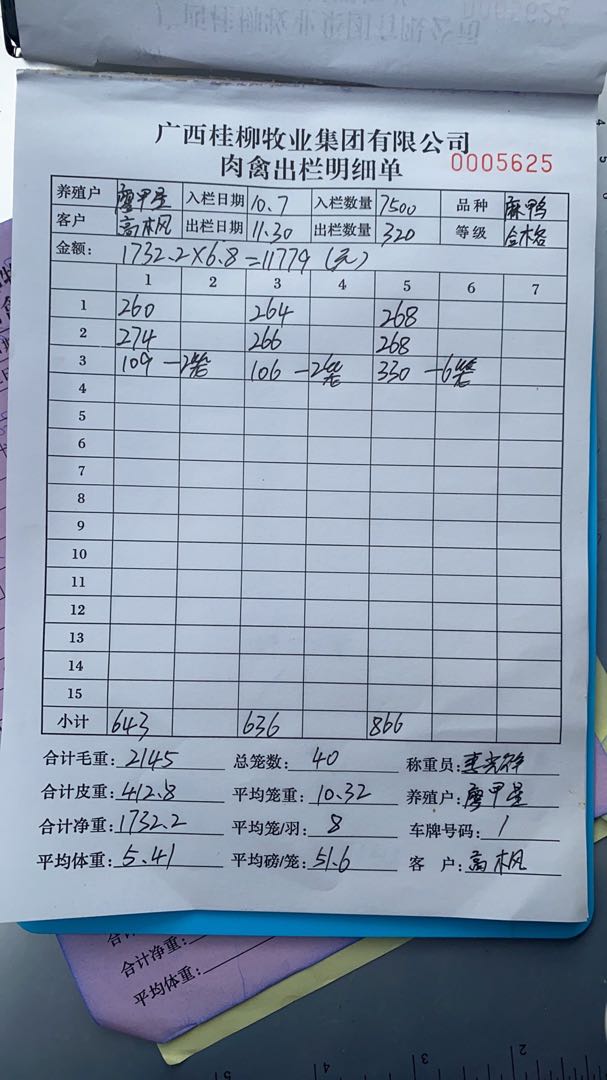 广西桂柳牧业集团有限公司
肉禽出栏明细单 0005625
养殖户 廖甲星 入栏日期 10.7 入栏数量 7500 品种 麻鸭
客户 高木风 出栏日期 11.30 出栏数量 320 等级 合格
金额: 1732.2×6.8=11779(元)
1 2 3 4 5 6 7
1 260 264 268
2 274 266 268
3 109 -2笼 106 -2笼 330 -6笼
4
5
6
7
8
9
10
11
12
13
14
15
小计 643 636 866
合计毛重: 2145 总笼数: 40 称重员:
合计皮重: 412.8 平均笼重: 10.32 养殖户: 廖甲星
合计净重: 1732.2 平均笼/羽: 8 车牌号码: 1
平均体重: 5.41 平均磅/笼: 51.6 客 户: 高木风
合计净重:
平均体重: